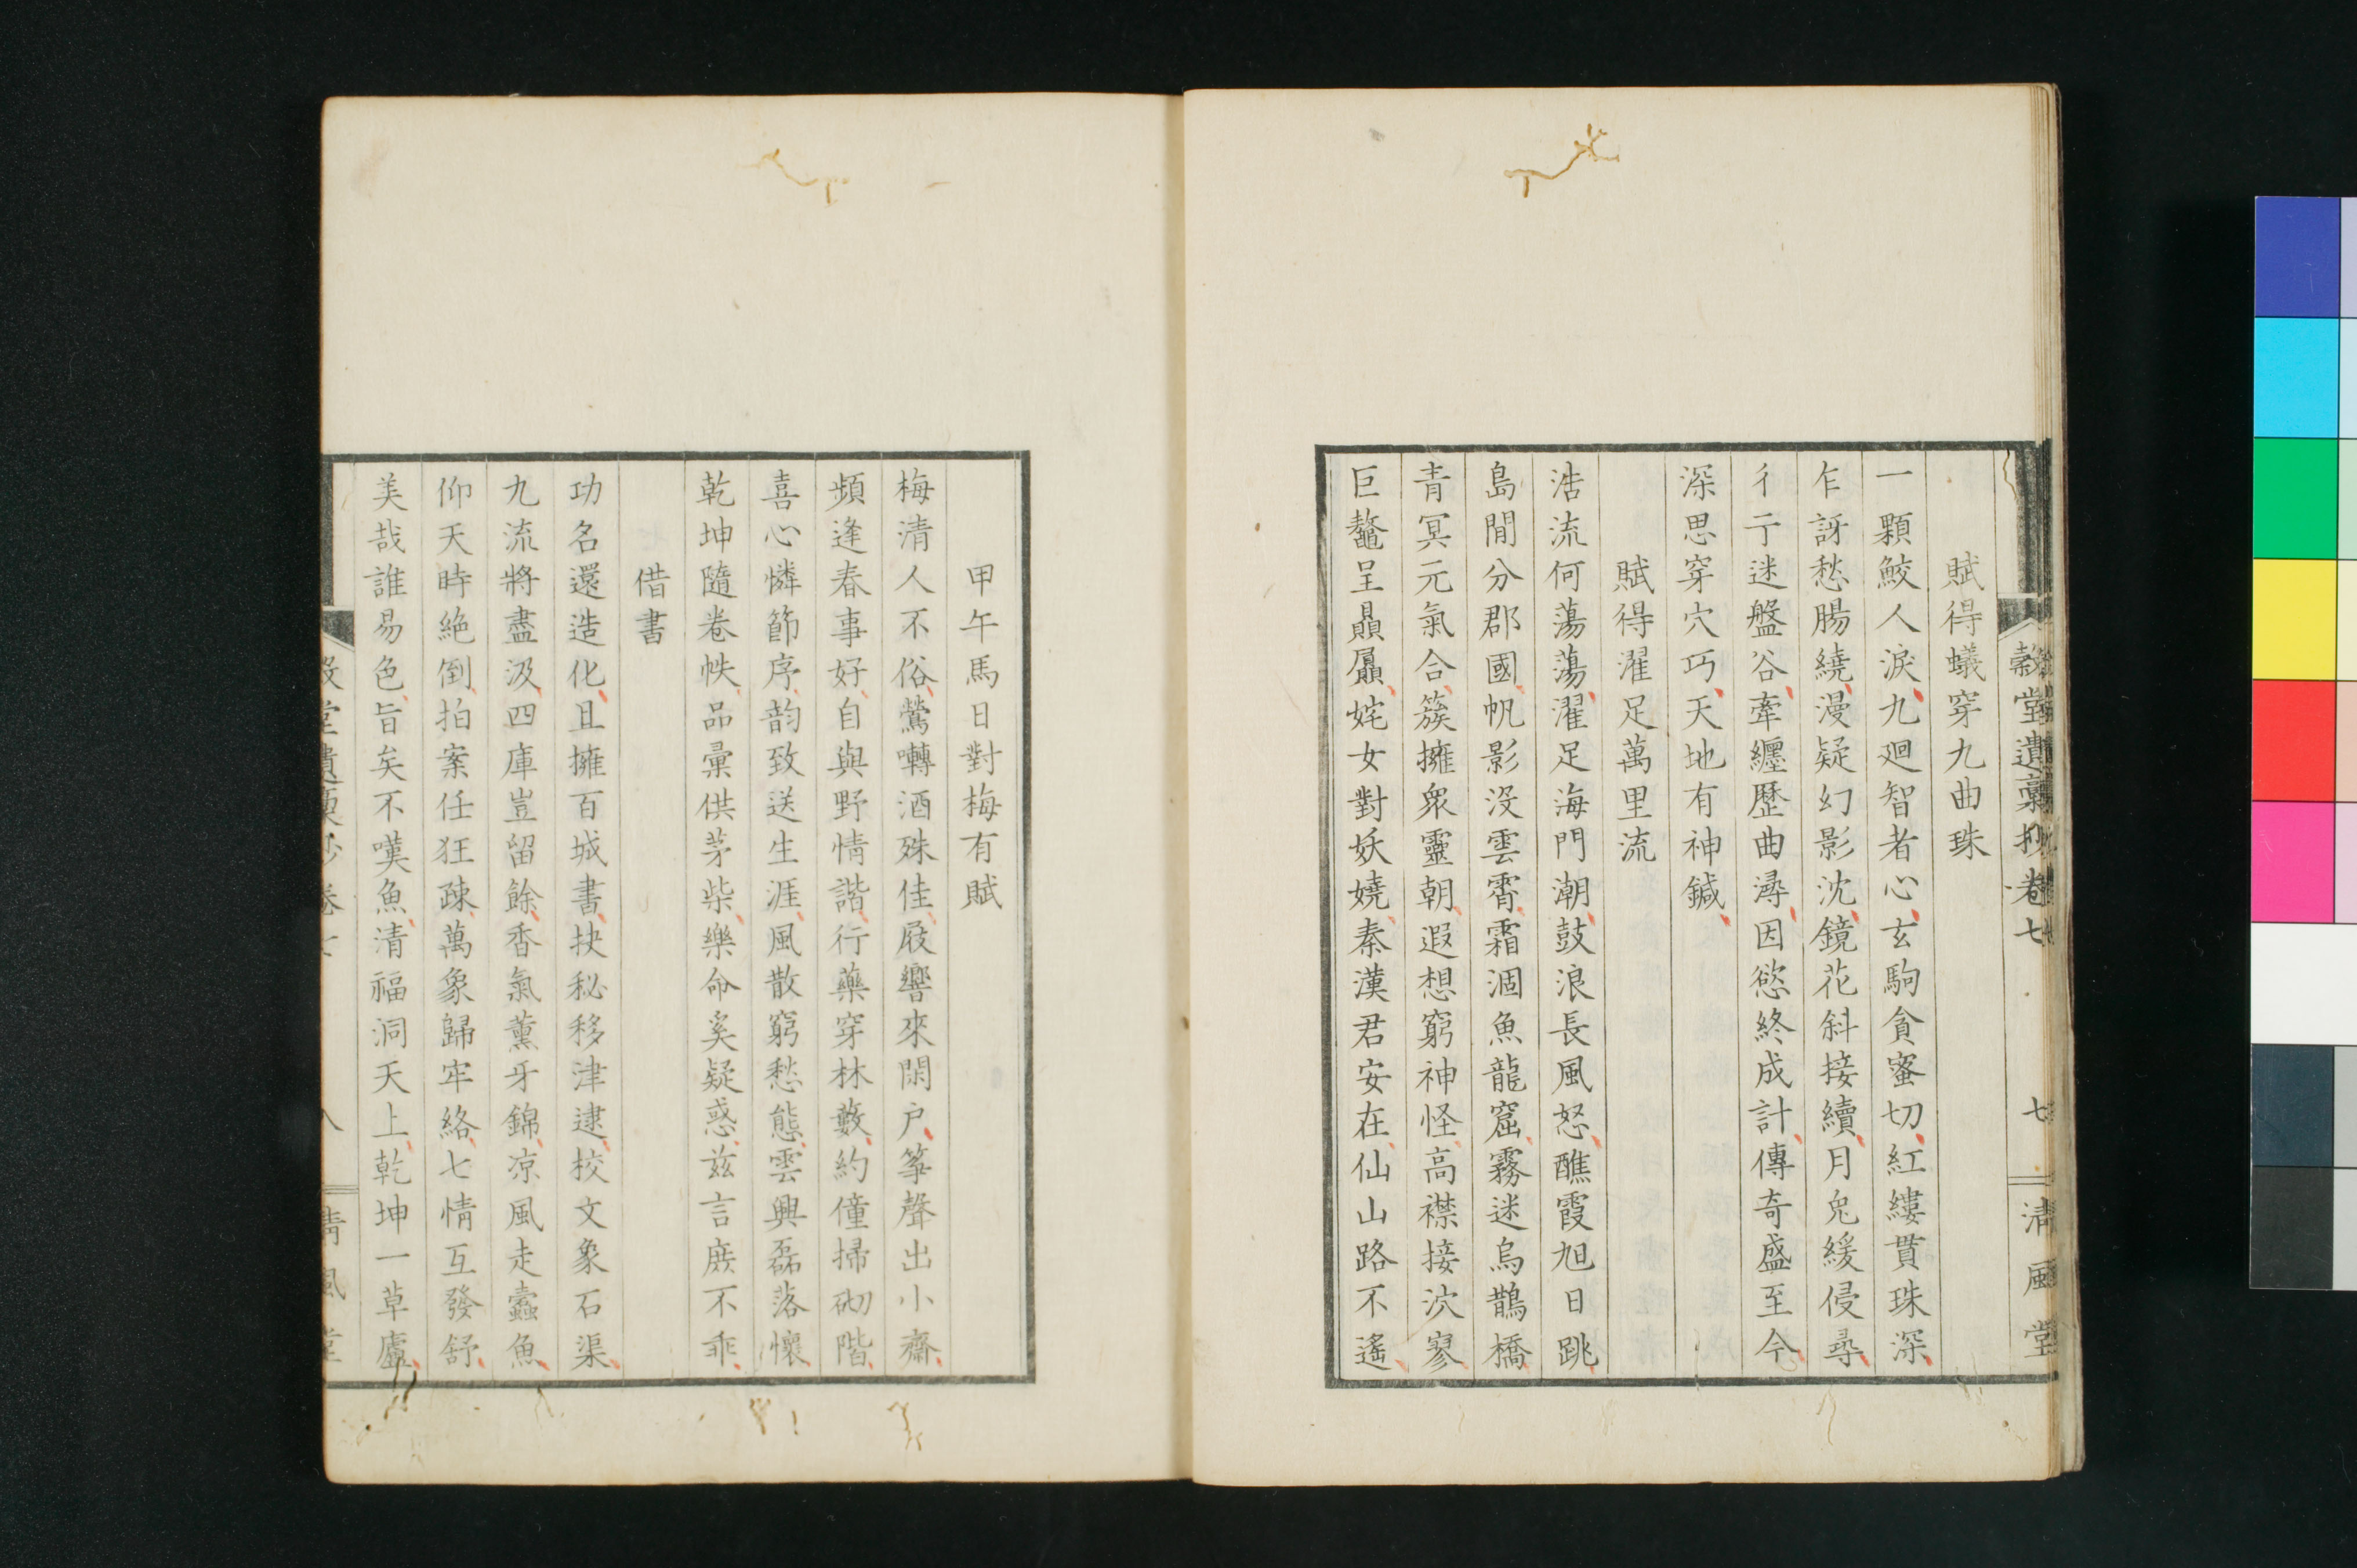 穀堂遺稾抄卷七 七 清風堂
賦得蟻穿九曲珠
一顆鮫人淚九廻智者心玄駒貪蜜切紅縷貫珠深
乍訝愁腸繞漫疑幻影沈鏡花斜接續月兔緩侵尋
彳亍迷盤谷牽纏歷曲潯因慾終成計傳奇盛至今
深思穿穴巧天地有神鍼
賦得濯足萬里流
浩流何蕩蕩濯足海門潮鼓浪長風怒醮霞旭日跳
島間分郡國帆影沒雲霄霜涸魚龍窟霧迷烏鵲橋
青冥元氣合簇擁衆靈朝遐想窮神怪高襟接泬寥
巨鼇呈贔屭姹女對妖嬈秦漢君安在仙山路不遙
甲午馬日對梅有賦
梅清人不俗鶯囀酒殊佳屐響來閑戶筝聲出小齋
頻逢春事好自與野情諧行藥穿林藪約僮掃砌階
喜心憐節序韵致送生涯風散窮愁態雲興磊落懷
乾坤隨卷帙品彙供茅柴樂命奚疑惑茲言庶不乖
借書
功名還造化且擁百城書抉秘移津逮校文象石渠
九流將盡汲四庫豈留餘香氣薰牙錦凉風走蠹魚
仰天時絕倒拍案任狂疎萬象歸牢絡七情互發舒
美哉誰易色旨矣不嘆魚清福洞天上乾坤一草廬
堂 卷七 八 清風堂